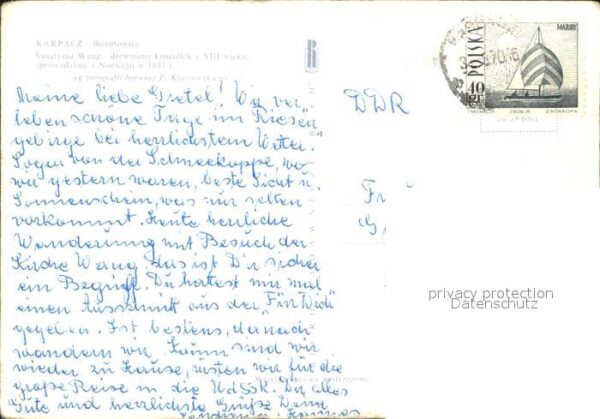 KARPACZ - Bierutowice
Świątynia Wang - drewniany kościółek z XIII wieku,
sprowadzony z Norwegii w 1841 r.
wg fotografii barwnej P. Krassowskiego
Meine liebe Gretel! Wir ver-
leben schöne Tage im Riesen
gebirge bei herrlichstem Wetter.
Sogar von der Schneekoppe, wo
wir gestern waren, beste Sicht u.
Sonnenschein, was nur selten
vorkommt. Heute herrliche
Wanderung mit Besuch der
Kirche Wang das ist Dir sicher
ein Begriff. Du hattest mir mal
einen Ausschnitt aus der "Für Dich"
gegeben. Ist bestens, danach
wandern wir. Kaum sind wir
wieder zu Hause, rüsten wir für die
große Reise in die UdSSR. Dir alles
Gute und herzlichste Grüße Deine
Hannes
DDR
Fr
G
POLSKA
40 gr
privacy protection
Datenschutz